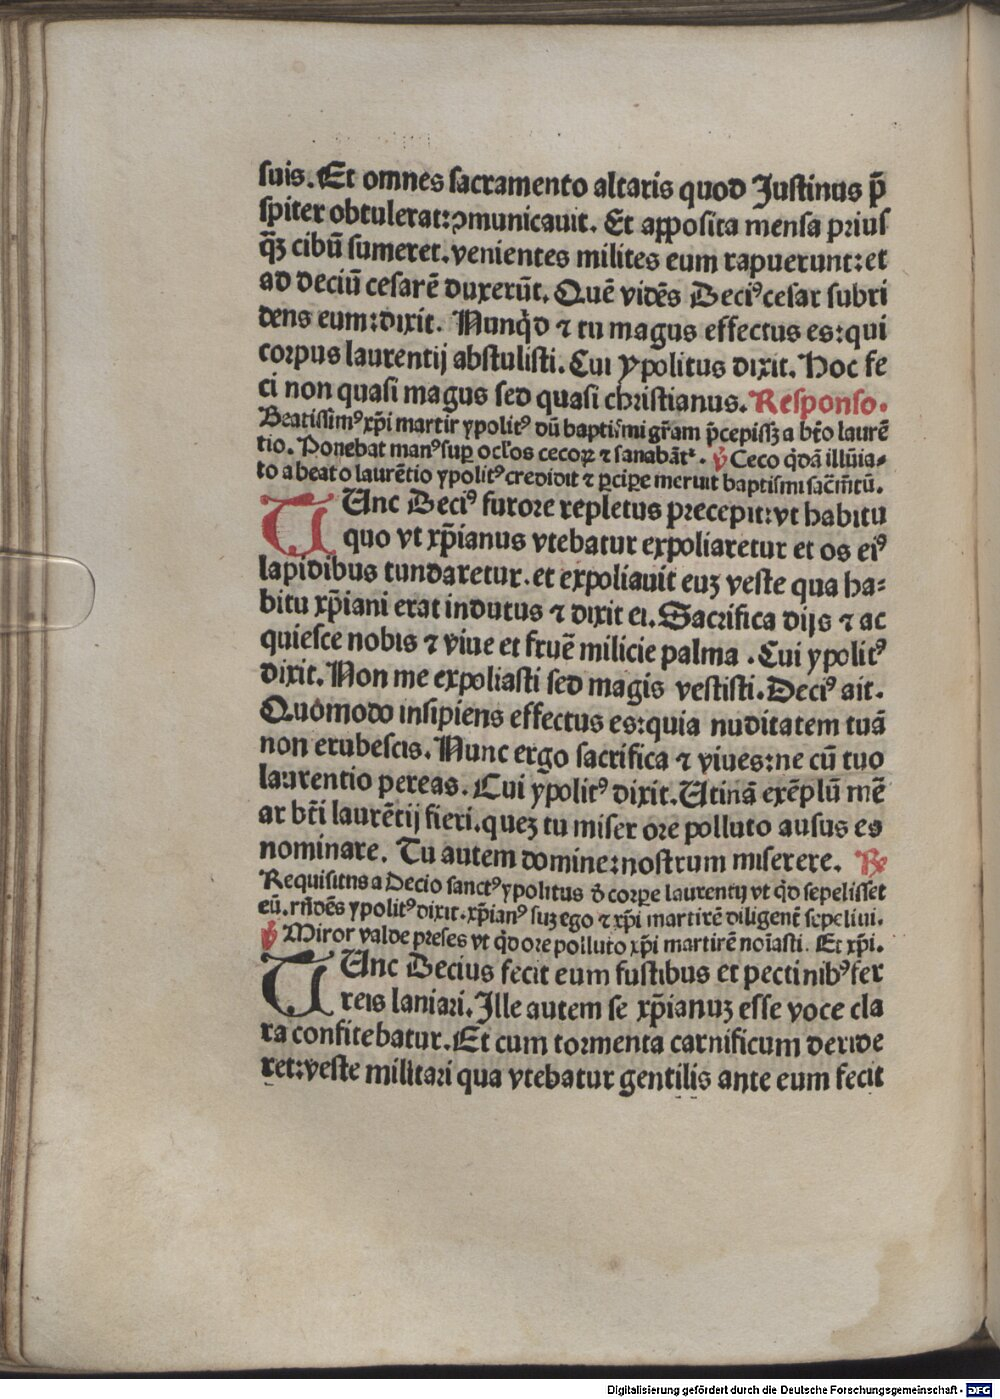 suis. Et omnes sacramento altaris quod Justinus p̄
spiter obtulerat: ꝯmunicauit. Et apposita mensa prius
q̄ꝫ cibū sumeret. venientes milites eum rapuerunt: et
ad deciū cesarē duxerūt. Quē vidēs Deciꝰ cesar subri
dens eum: dixit. Nunqͥd ⁊ tu magus effectus es: qui
corpus laurentij abstulisti. Cui ypolitus dixit. Hoc fe
ci non quasi magus sed quasi christianus. Responso.
Beatissimꝰ xp̄i martir ypolitꝰ dū baptismi gr̄am p̄cepissꝫ a bt̄o laurē
tio. Ponebat manꝰ suꝑ ocl̓os cecoꝝ ⁊ sanabāt᷑. ℣ Ceco qͦdā illūia⸗
to a beato laurētio ypolitꝰ credidit ⁊ ꝑcipe meruit baptismi sac̄m̄tū.
TUnc Deciꝰ furore repletus precepit: vt habitu
quo vt xp̄ianus vtebatur expoliaretur et os eiꝰ
lapidibus tundaretur. et expoliauit euꝫ veste qua ha⸗
bitu xp̄iani erat indutus ⁊ dixit ei. Sacrifica dijs ⁊ ac
quiesce nobis ⁊ viue et fruē milicie palma. Cui ypolitꝰ
dixit. Non me expoliasti sed magis vestisti. Deciꝰ ait.
Quōmodo insipiens effectus es: quia nuditatem tuā
non erubescis. Nunc ergo sacrifica ⁊ viues: ne cū tuo
laurentio pereas. Cui ypolitꝰ dixit. Utinā exēplū mē
ar bt̄i laurētij fieri. queꝫ tu miser ore polluto ausus es
nominare. Tu autem domine: nostrum miserere. ℞
Requisitus a Decio sanctꝰ ypolitus ð corꝑe laurentij vt qͦd sepelisset
eū. rn̄dēs ypolitꝰ dixit. xp̄ianꝰ suꝫ ego ⁊ xp̄i martirē diligent᷑ sepeliui.
℣ Miror valde preses vt qͦd ore polluto xp̄i martirē noīasti. Et xp̄i.
TUnc Decius fecit eum fustibus et pectinibꝰ fer
reis laniari. Ille autem se xp̄ianuꝫ esse voce cla
ra confitebatur. Et cum tormenta carnificum deride
ret: veste militari qua vtebatur gentilis ante eum fecit
Digitalisierung gefördert durch die Deutsche Forschungsgemeinschaft - DFG